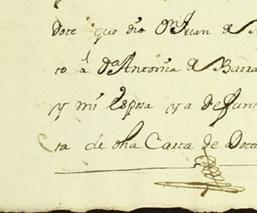 Dote que dio Dn Juan de
to á Da Antonia de Barra
y mi Esposa ya defun
ta de dha Carta de Dote